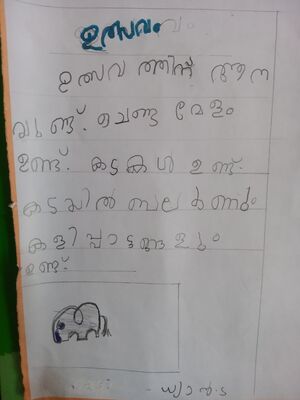 ഉത്സവം
ഉത്സവ ത്തിന് ആന
യുണ്ട്. ചെണ്ട മേളം
ഉണ്ട്. കടകൾ ഉണ്ട്.
കടയിൽ ബലൂണും
കളിപ്പാട്ടങ്ങളും
ഉണ്ട്.